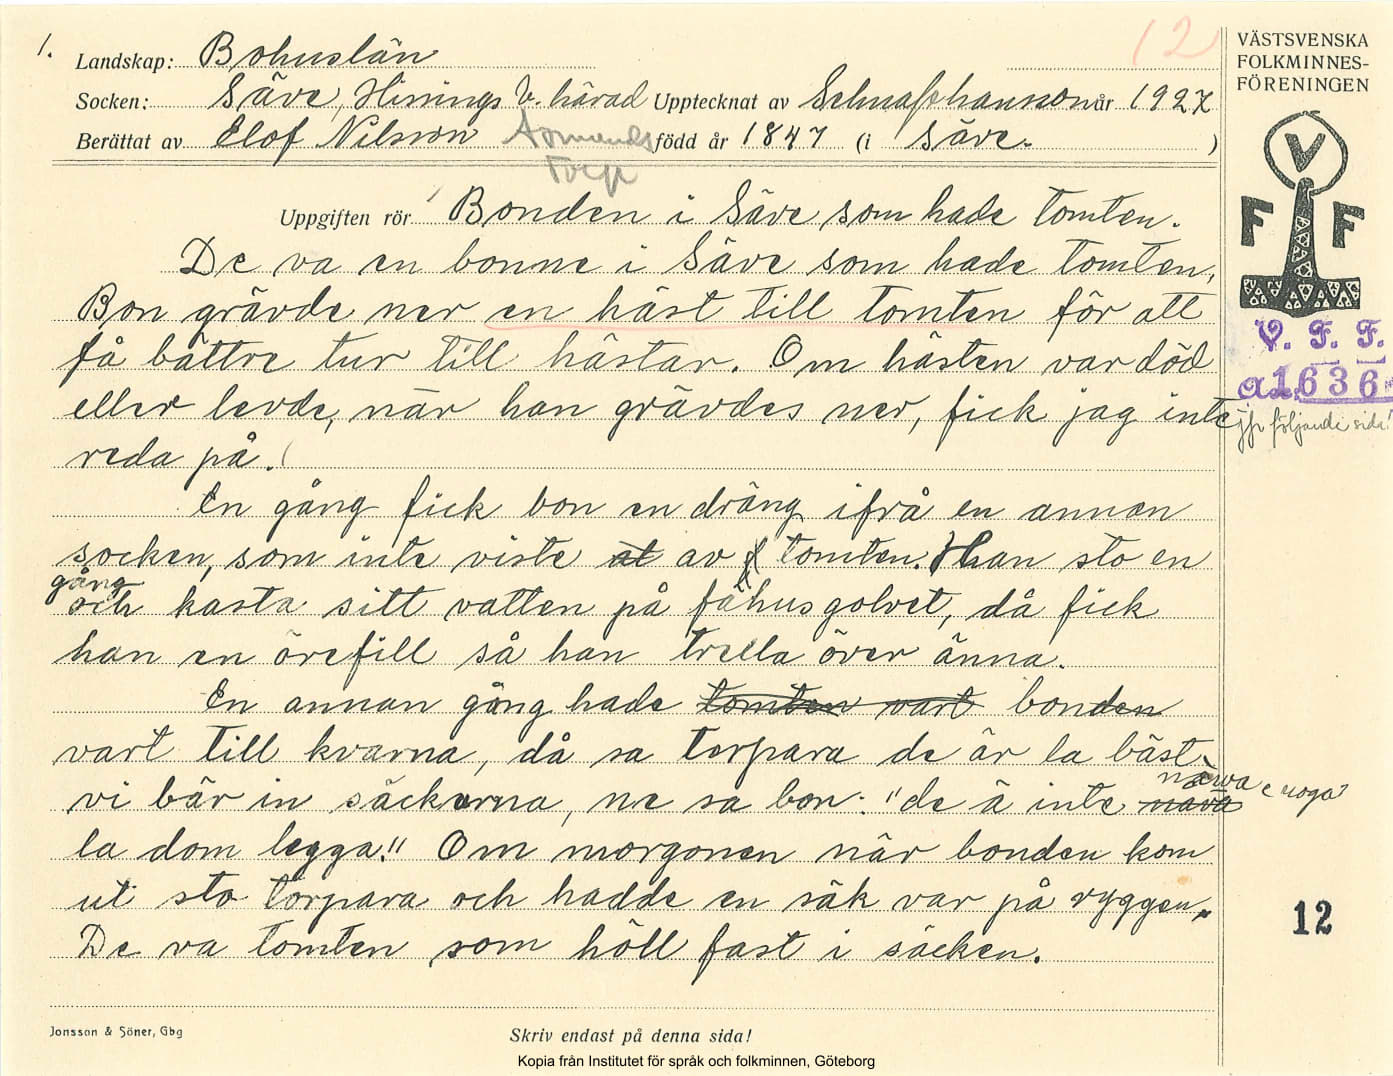 1.
12
Landskap: Bohuslän
Socken: Säve, Hisings V. härad Upptecknat av Johansson år 1927
Berättat av Elof Nilsson Asmunds född år 1847 (i Säve. )
Torp
Uppgiften rör Bonden i Säve som hade tomten.
De va en bonne i Säve som hade tomten,
Bon grävde ner en häst till tomten för att
få bättre tur till hästar. Om hästen var död
eller levde, när han grävdes ner, fick jag inte
reda på.
En gång fick bon en dräng ifrå en annan
socken, som inte viste at av tomten. Han sto en
gång
och kasta sitt vatten på fähusgolvet, då fick
han en örefill så han trella över änna.
En annan gång hade tomten vart bonden
vart till kvarna, då sa torpara de är la bäst
vi bär in säckarna, ne sa bon: "de ä inte nava
la dom legga!" Om morgonen när bonden kom
ut sto torpara och hadde en säk var på ryggen.
De va tomten som höll fast i säcken.
VÄSTSVENSKA
FOLKMINNES-
FÖRENINGEN
V
F F
V. F. F.
1636
jfr följande sida!
noga
12
Jonsson & Söner, Gbg
Skriv endast på denna sida!
Kopia från Institutet för språk och folkminnen, Göteborg